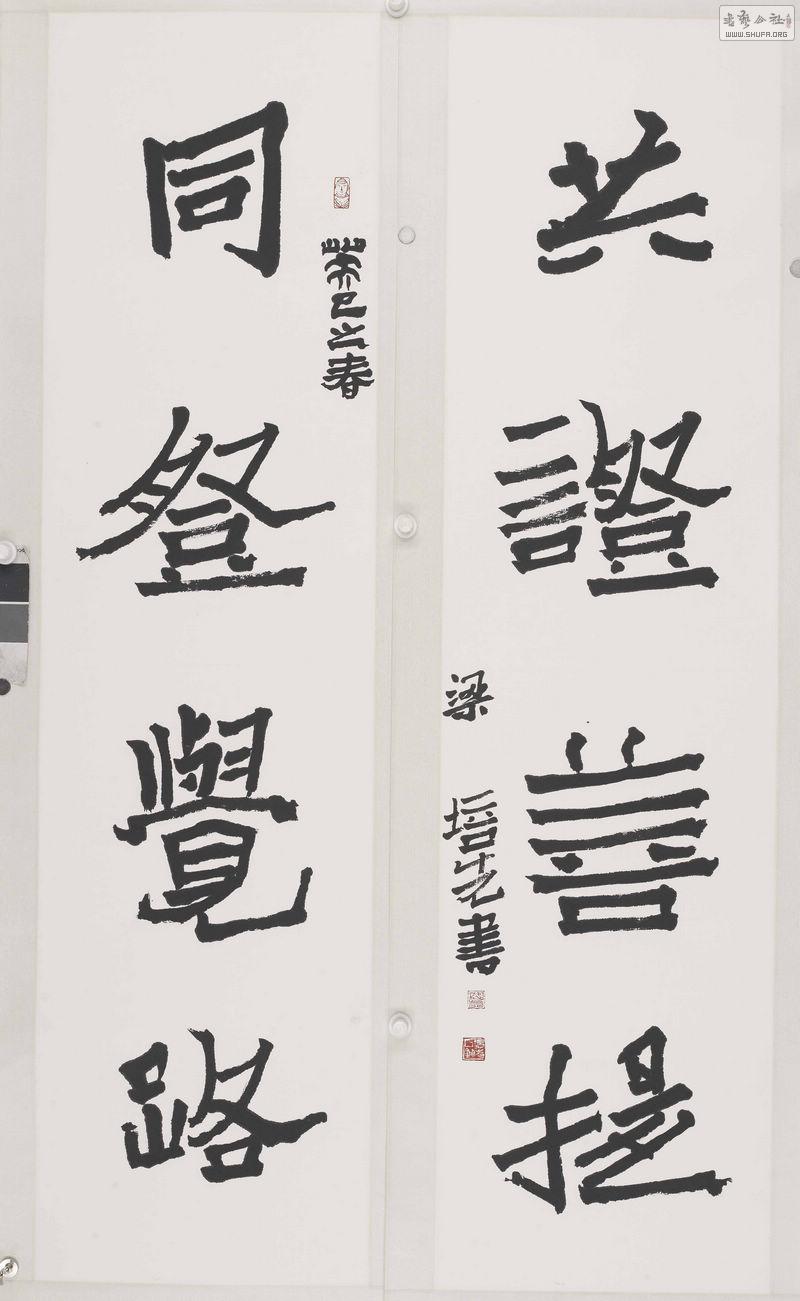 共證善提
同登覺路
癸巳之春
梁培先書
书艺公社
WWW.SHUFA.ORG